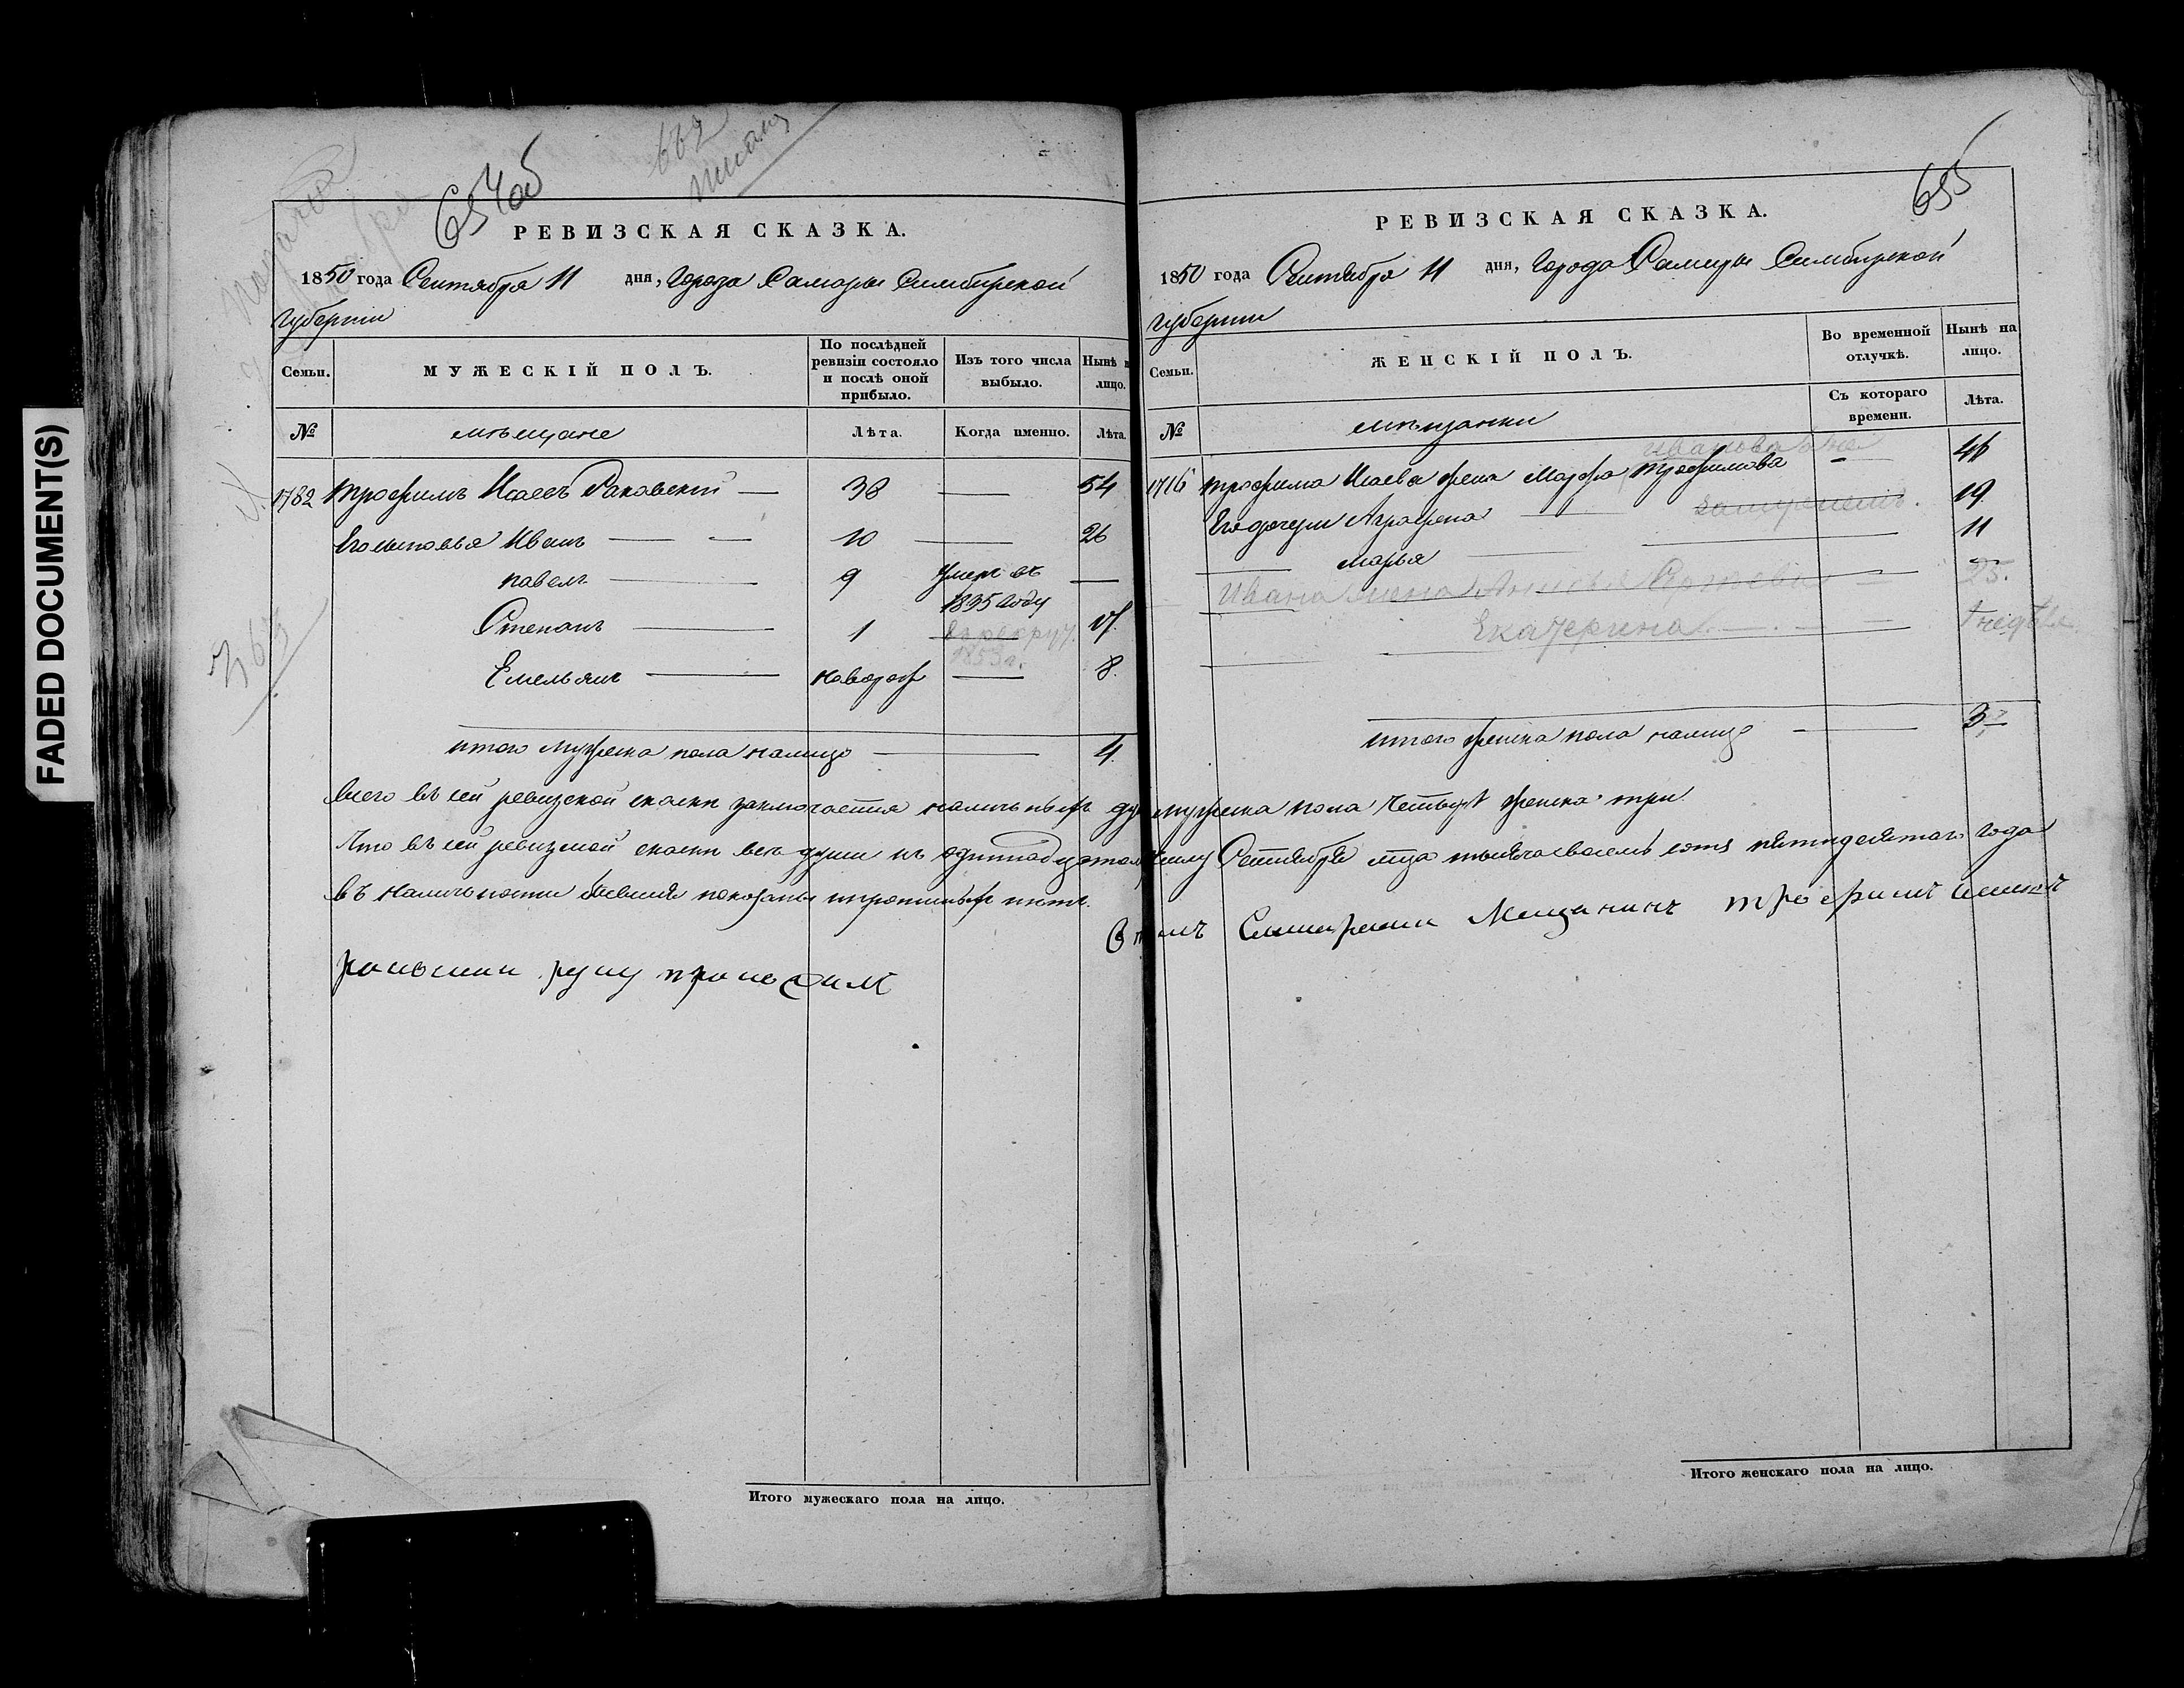 FADED DOCUMENT(S)
654об
РЕВИЗСКАЯ СКАЗКА.
1850 года Сентября 11 дня, Города Самары Симбирской
Губернии
Семьи.
МУЖЕСКІЙ ПОЛЪ.
По послѣдней ревизіи состояло и послѣ оной прибыло.
Изъ того числа выбыло.
Нынѣ н лицо.
№
мѣщане
Лѣта.
Когда именно.
Лѣта.
1782 Трофимъ Исаевъ Раковскій — 38 — 54
Его сыновья Иванъ — — 10 — 26
Павелъ — 9 Умеръ въ 1835 году —
Степанъ — 1 — 17
въ рекрут. 1853 г.
Емельянъ — новорож — 8.
итого мужеска пола налицо — 4.
655
РЕВИЗСКАЯ СКАЗКА.
1850 года Сентября 11 дня, Города Самары Симбирской
Губернии
Семьи.
ЖЕНСКІЙ ПОЛЪ.
Во временной отлучкѣ.
Нынѣ на лицо.
№
мѣщанки
Съ котораго времени.
Лѣта.
1716 Трофима Исаева жена Марфа Трофимова — 46
Иванова
Его дочери Аграфена — 19
замужемъ.
Марья — 11
Ивана жена Анисья — 25.
Екатерина — недѣли
итого женска пола налицо — 3
Всего въ сей ревизской скаски заключается наличныхъ ду мужеска пола четыре женска три.
Что въ сей ревизской скаски все души къ одиннадцатому числу Сентября мца тысяча восемь сотъ пятидесятаго года
въ наличности бывшия показаны и прописныхъ нетъ.
Мещанинъ Трофимъ
руку
Итого мужескаго пола на лицо.
Итого женскаго пола на лицо.